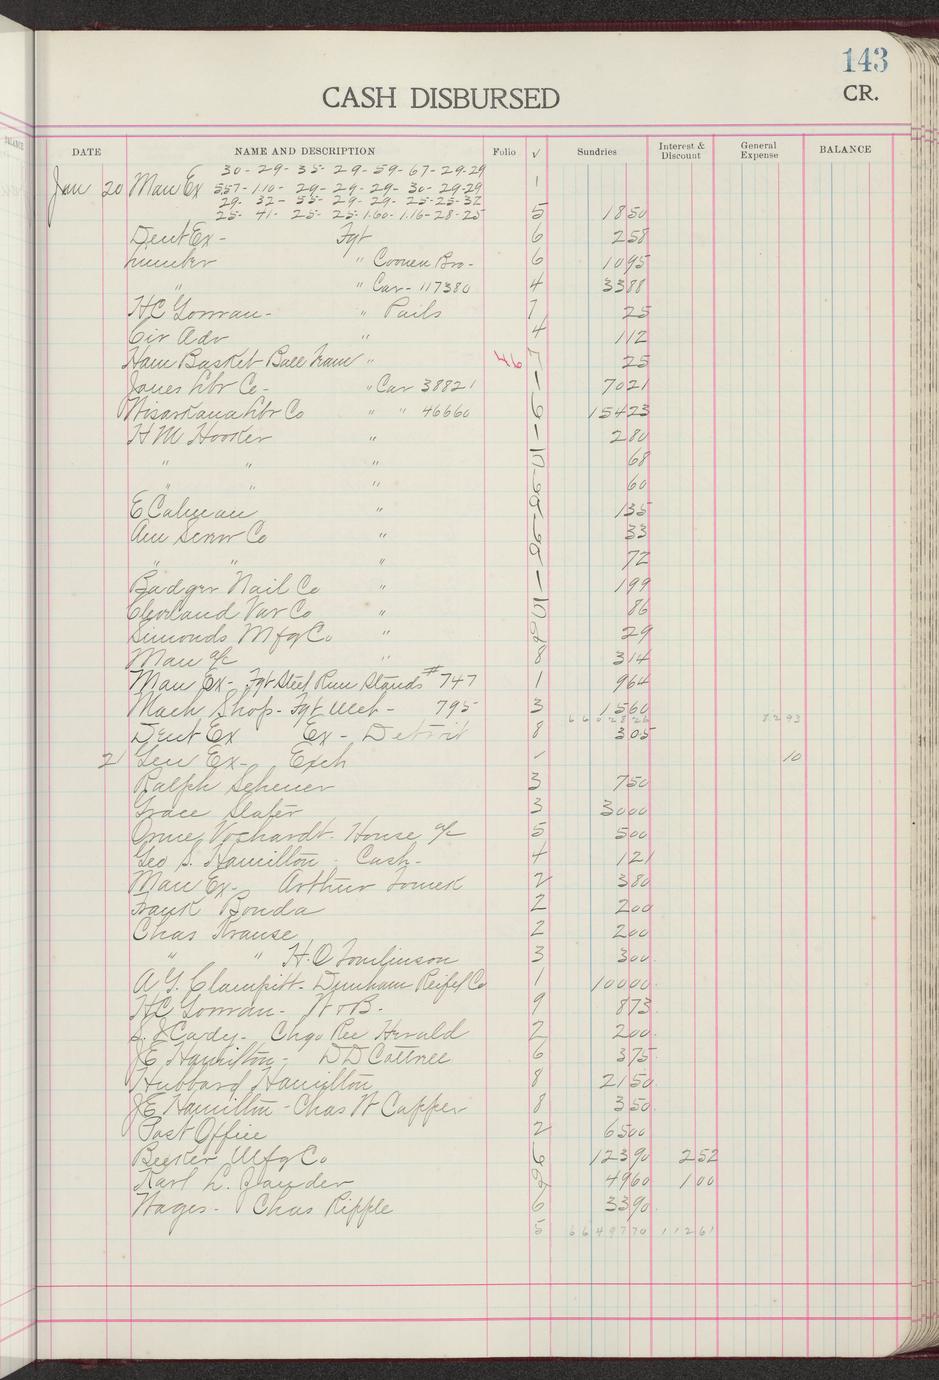 143
CASH DISBURSED
CR.
DATE NAME AND DESCRIPTION Folio √ Sundries Interest & Discount General Expense BALANCE
30- 29- 35- 29- 59- 67- 29-29
Jan 20 Man Ex 557- 1.10- 29- 29- 29- 30- 29-29 1
29- 32- 55- 29- 29- 25-25-32
25- 41- 25- 25-1.60- 1.16-28-25 5 1850
Dent Ex- Fgt 6 258
Lumber " Coonen Bro- 6 1095
" " Car- 117380 4 3388
HC Gorman- " Pails 7 25
Cir Adv " 4 112
Ham Basket Ball Team " 46 25
Jones Lbr Co- " Car 38821 7021
Wisarkana Lbr Co " " 46660 15423
H M Hooker " 280
" " " 68
" " " 60
E Calman " 135
Am Screw Co " 33
" " " 72
Badger Nail Co " 199
Cleveland Var Co " 86
Simonds Mfg Co " 29
Man a/c " 8 314
Man Ex- Fgt Steel Run Stands #747 1 964
Mach Shop- Fgt Mch- 795 3 1560
6602826 8293
Dent Ex Ex- Detroit 8 305
21 Gen Ex- Exch 10
Ralph Scheuer 3 750
Grace Slater 3 3000
House a/c 5 500
Geo S. Hamilton - Cash- 4 121
Man Ex- Arthur Tomek 2 380
Frank Bonda 2 200
Chas Krause 2 200
" " H.O Tomlinson 3 300
A G. Clampitt- Dunham Reifel Co 1 10000
HC Gorman- W & B. 9 873
S. J Cady- Chgo Rec Herald 2 200
JE Hamilton- DD Cottnee 6 375
Hubbard Hamilton 8 2150
JE Hamilton- Chas W Capper 8 350
Post Office 2 6500
Becker Mfg Co 6 12390 252
Karl L. 4960 100
Wages- Chas Ripple 6 3390
5 6649770 11261